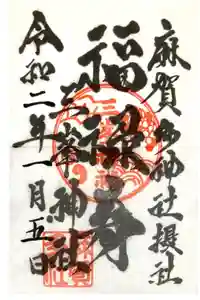 麻賀多神社摂社
福禄寿
三峯神社
令和二年一月五日